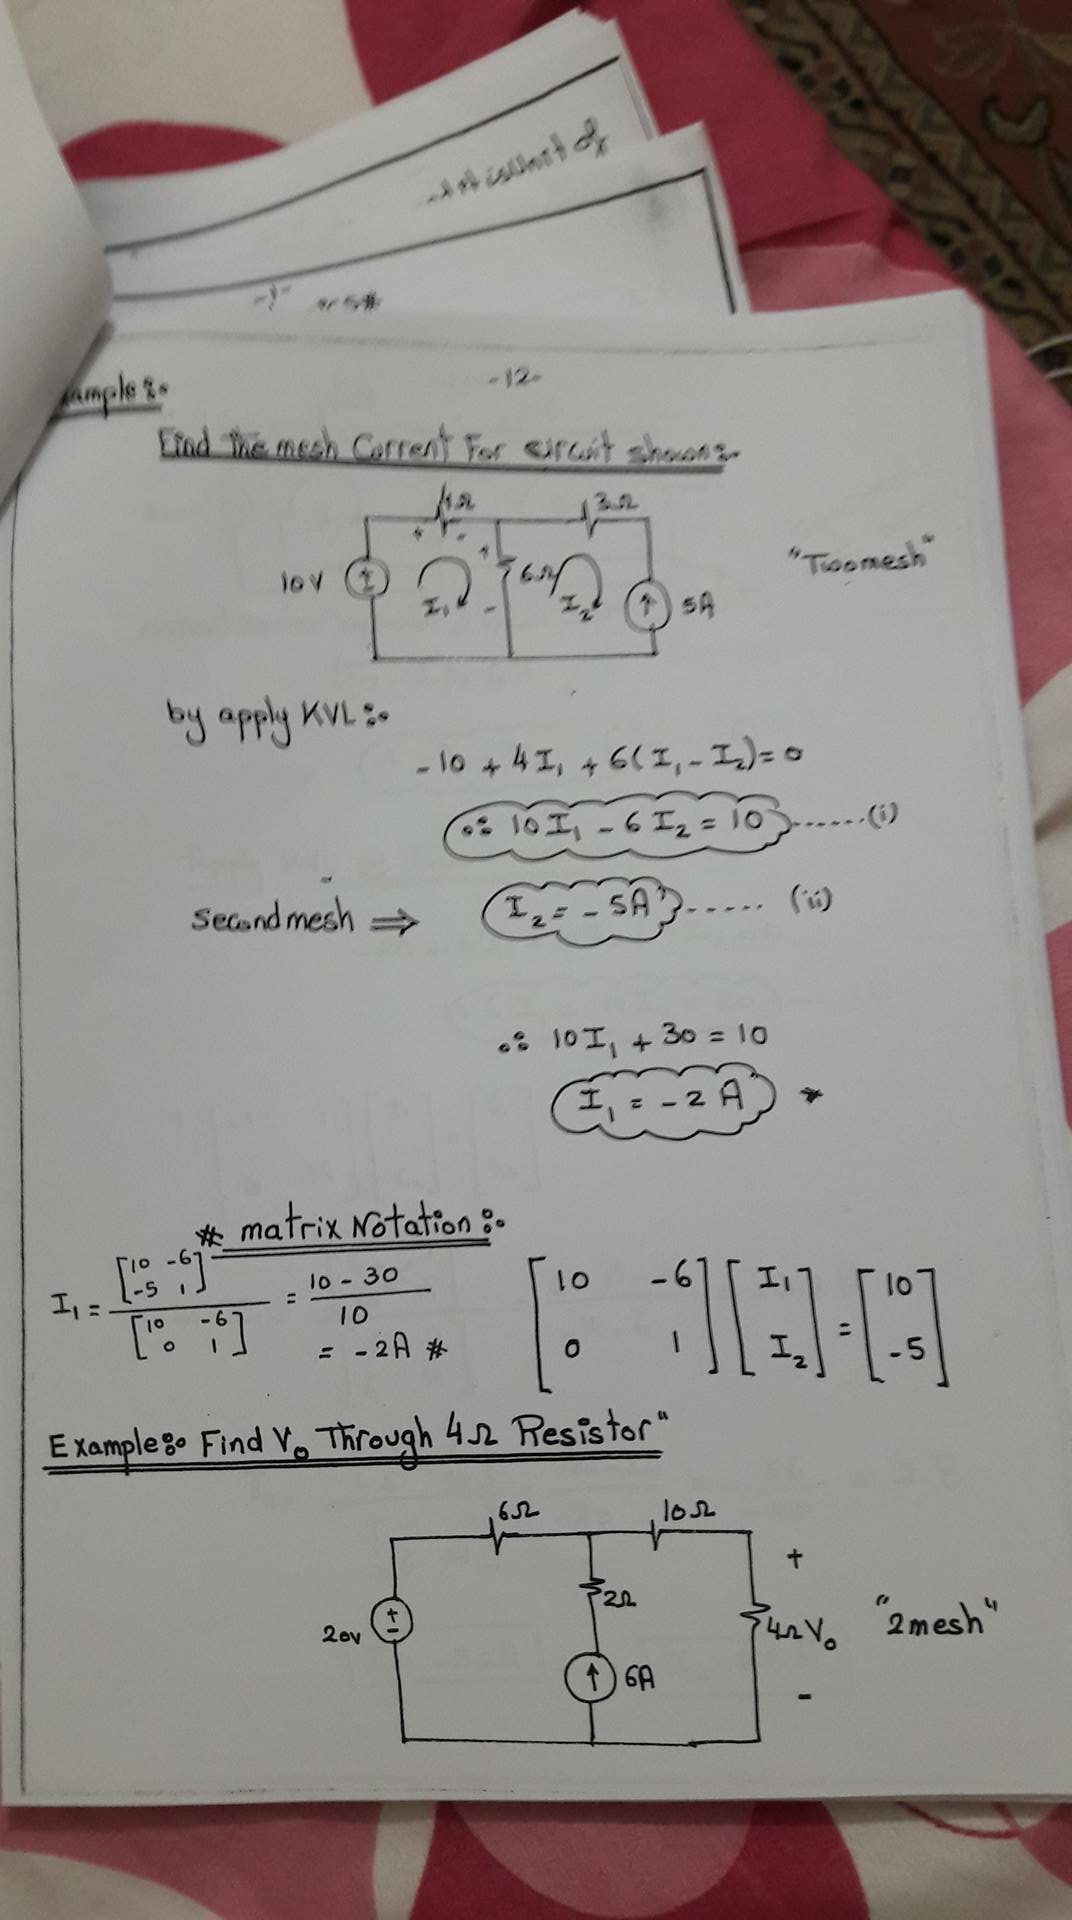 -12-
ample:-
Find the mesh Current For circuit shown:-
4Ω
3Ω
+ -
+
10V
6Ω
I₁
-
I₂
5A
"Two mesh"
by apply KVL:-
-10 + 4I₁ + 6(I₁ - I₂) = 0
∴ 10I₁ - 6I₂ = 10 ...... (i)
Second mesh ⇒ I₂ = -5A ...... (ii)
∴ 10I₁ + 30 = 10
I₁ = -2A *
* matrix Notation:-
I₁ = [10 -6 -5 1] / [10 -6 0 1] = 10 - 30 / 10
= -2A #
[10 -6 0 1] [I₁ I₂] = [10 -5]
Example:- Find V₀ Through 4Ω Resistor"
6Ω
10Ω
+
2Ω
20V
+
-
4Ω V₀
"2mesh"
6A
-